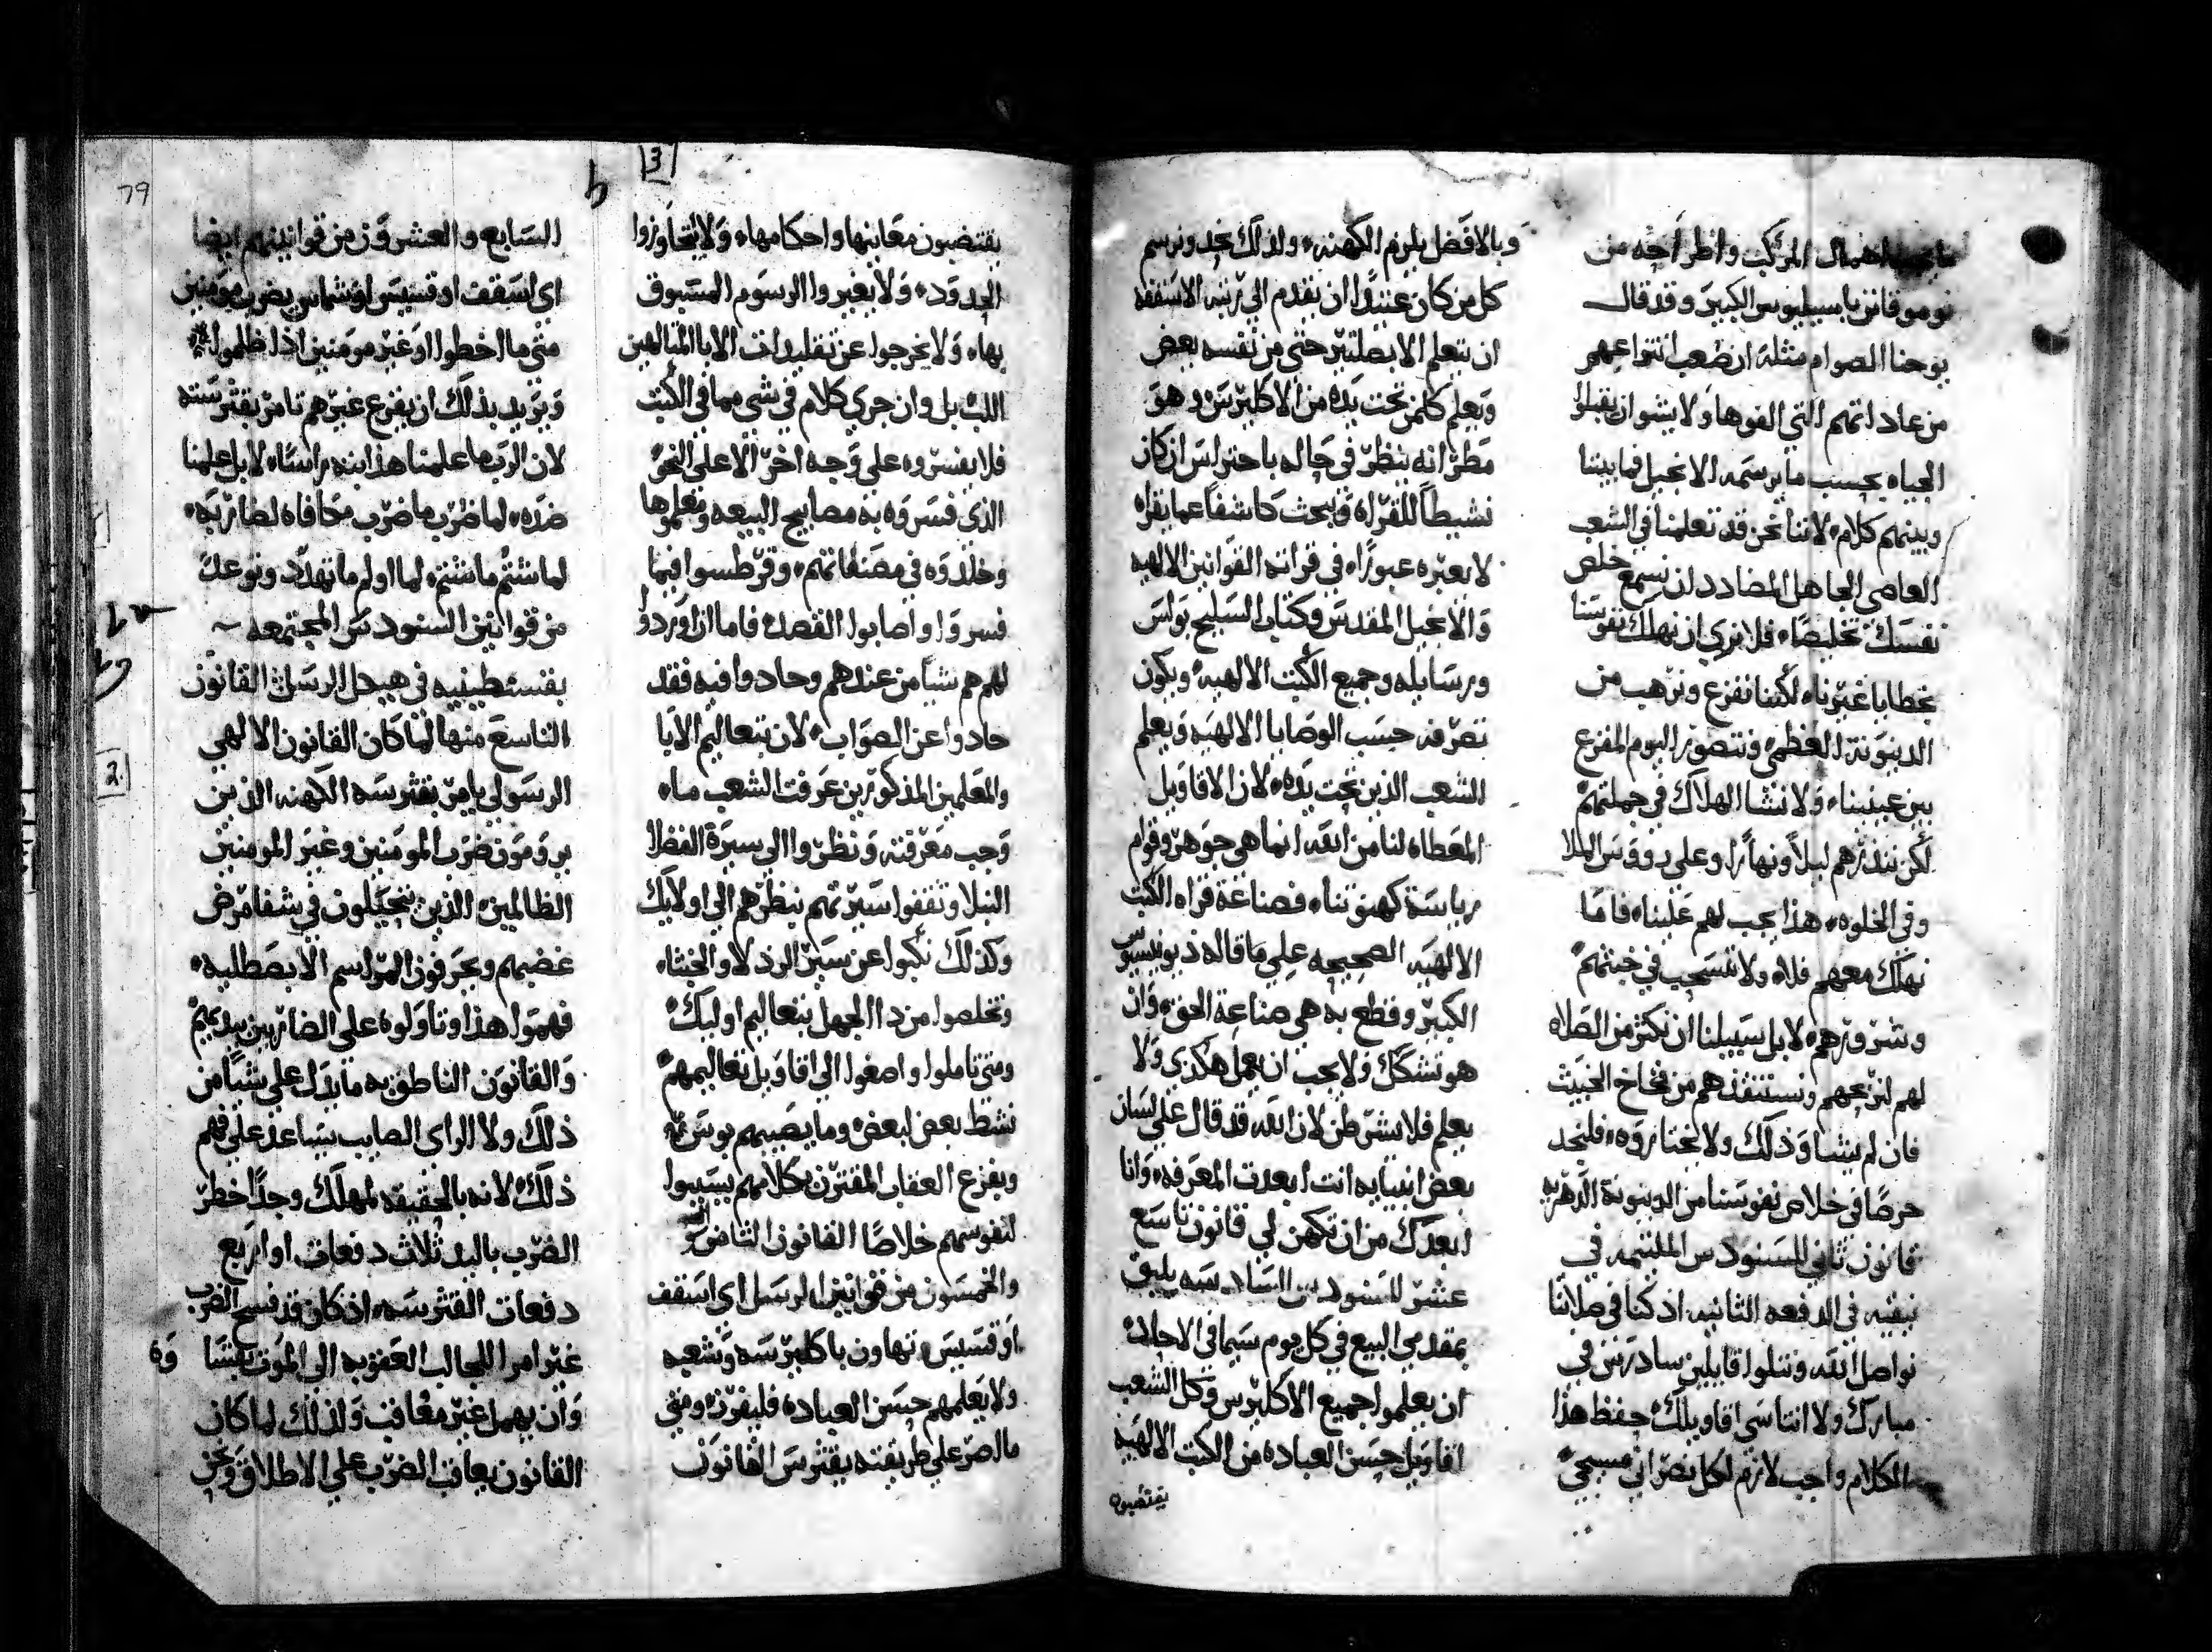 ما يجب اهمال المركب واطراحه من
نوموقانن باسيليوس الكبير وقد قال
يوحنا الصوام مثله ان صعب انتزاعهم
من عاداتهم التي الفوها ولا يشوان يقبلوا
الحياه بحسب ما يرسمه الانجيل فما بيننا
وبينهم كلام لاننا نحن قد تعلمنا في الشعب
العاصي الجاهل المضادد ان نسمع خلص
نفسك تخليصًا فلا نري ان نهلك نفوسنا
بخطايا غيرنا لكننا نفزع ونرهب من
الدينونة العظمي ونتصور اليوم المفزع
بين عينينا ولا نشا الهلاك في جملتهم
لكن ننذرهم ليلاً ونهارًا وعلي رووس الملا
وفي الخلوه هذا يجب لهم علينا فاما
نهلك معهم فلا ولا ننسحب في خبثهم
وشرورهم لا بل سبيلنا ان نكثر من الصلاه
لهم لنربحهم ونستنقذهم من فخاخ الخبيث
فان لم يشاوا ذلك ولا يختاروه فلنجد
حرصًا في خلاص نفوسنا من الدينونة الدهريه
قانون ثاني للسنودس الملتيمه في
نيقيه في الدفعه الثانيه اذ كنا في صلاتنا
نواصل الله ونتلوا قايلين سادرس في
مبارك ولا انتاسي اقاويلك حفظ هذا
الكلام واجب لازم لكل نصراني مسيحي
وبالافضل يلزم الكهنه ولذلك نحد ونرسم
كل من كان عتيدًا ان يقدم الي رتبه الاسقفه
ان يتعلم الابصلتير حتي من نفسه يعض
ويعلم كلمن تحت يده من الاكليرس وهو
مطرانه ينظر في حاله باحتراس ان كان
نشيطاً للقراه ويبحث كاشفاً عما يقراه
لا يعبره عبورًا في قراته القوانين الالهيه
والانجيل المقدس وكتاب السليح بولس
ورسايله وجميع الكتب الالهيه ويكون
تصرفه حسب الوصايا الالهيه ويعلم
الشعب الذين تحت يده لان الاقاويل
المعطاه لنا من الله انما هي جوهر وقوام
رياسة كهنوتنا فصناعة قراه الكتب
الالهيه الصحيحه علي ما قاله ذيونيسيوس
الكبير وقطع به هي صناعة الحق وان
هو تشكك ولا يجب ان يعمل هكذي ولا
يعلم فلا يشرطن لان الله قد قال علي لسان
بعض انبيايه انت ابعدت المعرفه وانا
ابعدك من ان تكهن لي قانون تاسع
عشر للسنودس السادسه يليق
بمقدمي البيع في كل يوم سيما في الاحاد
ان يعلموا جميع الاكليرس وكل الشعب
اقاويل حسن العباده من الكتب الالهيه
يقتضبون
يقتضبون معانيها واحكامها ولا يتجاوزوا
الحدود ولا يغيروا الرسوم المسبوق
بها ولا يخرجوا عن تقليدات الابا المتالهين
اللب بل وان جري كلام في شي مما في الكتب
فلا يفسروه علي وجه اخر الا علي النحو
الذي فسروه به مصابيح البيعه ومعلموها
وخلدوه في مصنفاتهم وقرطسوا فيما
فسروا واصابوا القصد فاما ان اوردوا
لهم هم شياً من عندهم وحادوا فيه فقد
حادوا عن الصواب لان بتعاليم الابا
والمعلمين المذكورين عرفت الشعب ما
وجب معرفته ونظروا الي سيرة الفضلا
النبلا وثقفوا سيرتهم بنظرهم الي اولايك
وكذلك نكبوا عن سير الرذلا والخبثا
وتخلصوا من دا الجهل بتعاليم اوليك
ومتي تاملوا واصغوا الي اقاويل تعاليمهم
نشط بعض لبعض وما يصيبهم بوس ثم
وبفزع العقاب المقترن بكلامهم يسببوا
لنفوسهم خلاصًا القانون الثامن
والخمسون من قوانين الرسل اي اسقف
او قسيس تهاون باكليرسه وشعبه
ولا يعلمهم حسن العباده فليفرز ومتي
ما اصر علي طريقته يقثرس القانون
السابع والعشرون من قوانينهم ايضا
اي اسقف او قسيس او شماس يضرب مومنين
متي ما اخطوا او غير مومنين اذا ظلموا
ويريد بذلك ان يفزع غيرهم نامر بقثرسته
لان الرب ما علمنا هذا ابته راسًا لا بل علمنا
ضده لما ضرب ما ضرب مكافاه لضاربه
لما شتم ما شتم لما اولم ما تهدد وتوعد
من قوانين السنودس المجتمعه
بقسطنطينيه في هيكل الرسل القانون
التاسع منها لما كان القانون الالهي
الرسولي يامر بقثرسه الكهنه الذين
يرومون ضرب المومنين وغير المومنين
الظالمين الذين يتحيلون في شفا مرض
غضبهم ويحرفون المراسم الابصطليه
فهموا هذا وتاولوه علي الضاربين بيديهم
والقانون الناطق به ما يدل علي شياً من
ذلك ولا الراي الصايب يساعد علي فهم
ذلك لانه بالحقيقه لمهلك وجدًا خطر
الضرب باليد ثلاث دفعات او اربع
دفعات القثرسه اذ كان قد فسح الضرب
غير امرا الجالب العقوبه الي الموت
وان يهمل غير معاقب ولذلك لما كان
القانون يعاقب الضرب علي الاطلاق ونحن
79
3
2